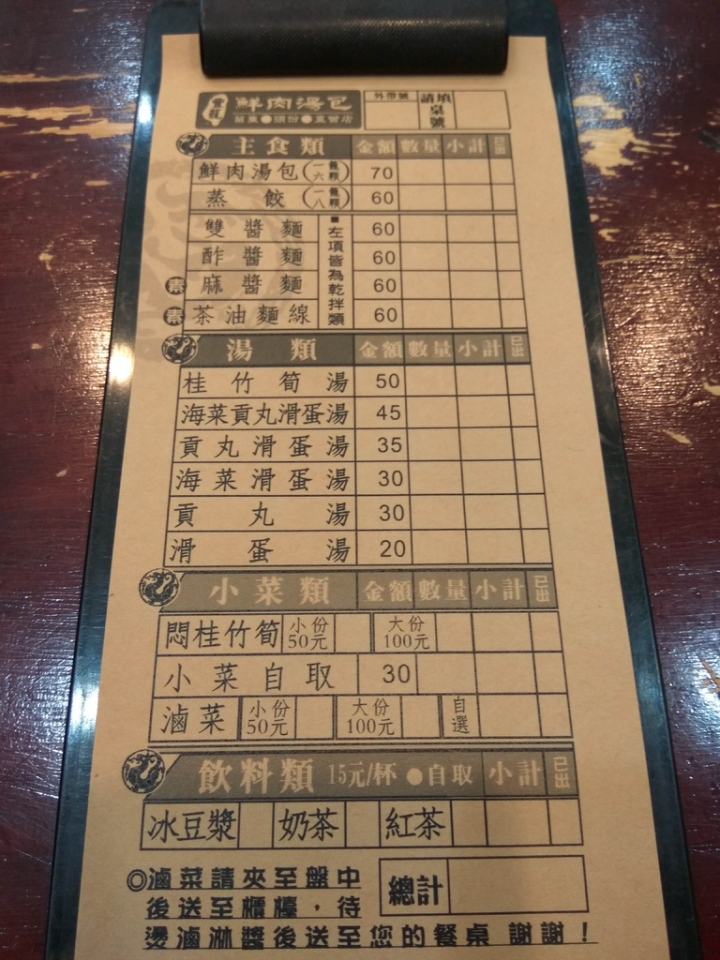 鮮肉湯包 外帶號 請填桌號
苗栗●頭份●直營店
主食類 金額 數量 小計 已出
鮮肉湯包(一籠六顆) 70
蒸餃(一籠八顆) 60
雙醬麵 60
酢醬麵 60
素 麻醬麵 60
素 茶油麵線 60
■左項皆為乾拌類
湯類 金額 數量 小計 已出
桂竹筍湯 50
海菜貢丸滑蛋湯 45
貢丸滑蛋湯 35
海菜滑蛋湯 30
貢丸湯 30
滑蛋湯 20
小菜類 金額 數量 小計 已出
悶桂竹筍 小份50元 大份100元
小菜自取 30
滷菜 小份50元 大份100元 自選
飲料類 15元/杯 ●自取 小計 已出
冰豆漿 奶茶 紅茶
◎滷菜請夾至盤中 總計
後送至櫃檯,待
燙滷淋醬後送至您的餐桌 謝謝!